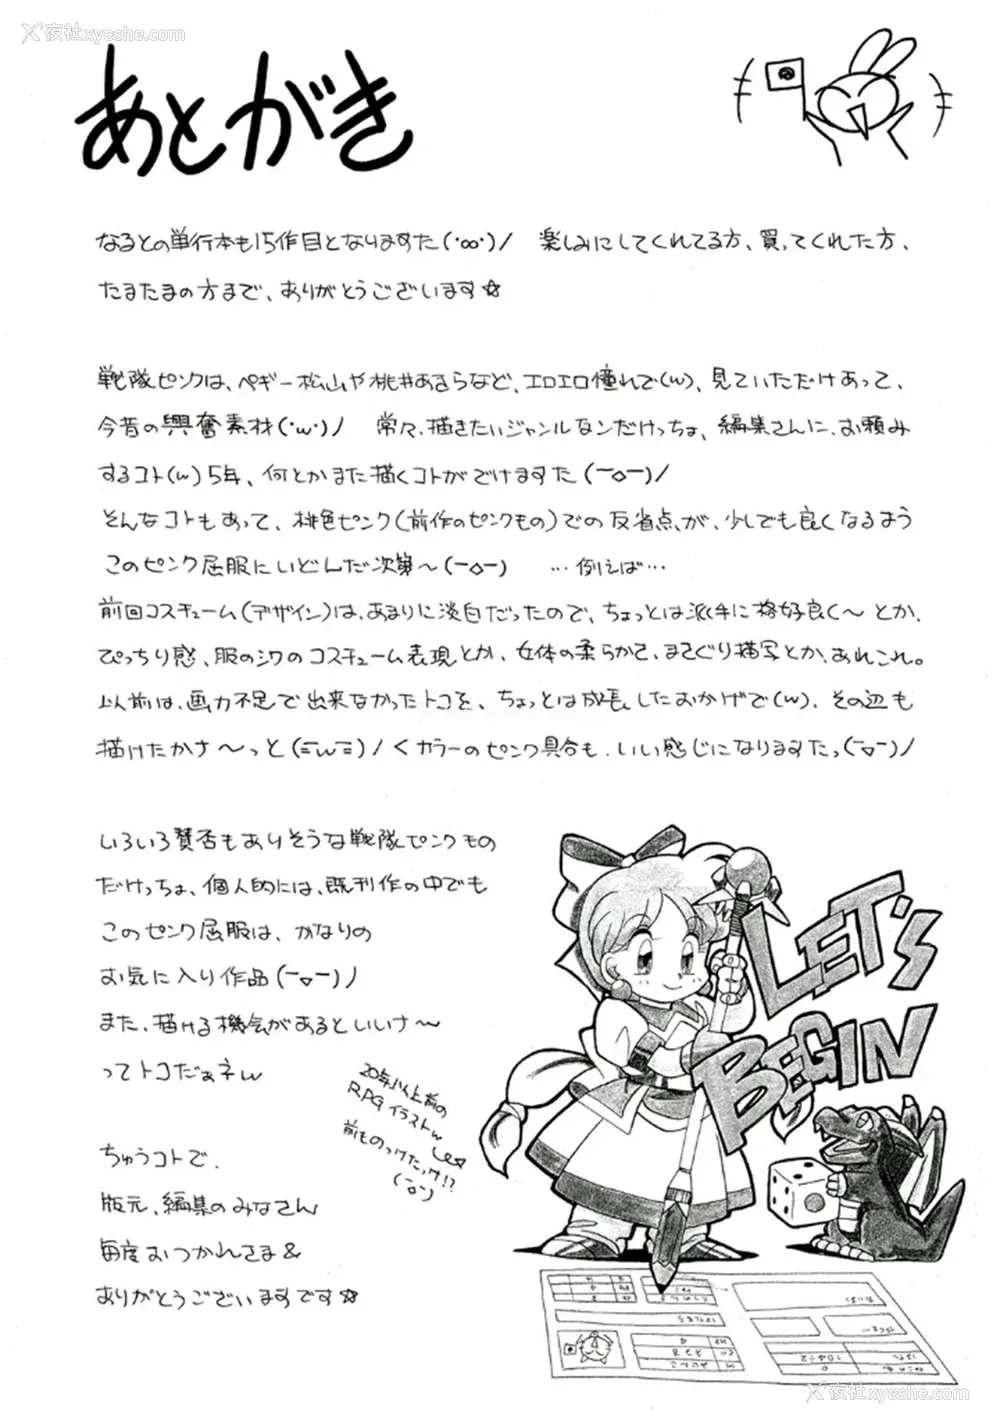 夜社xyeshe.com
あとがき
なるとの単行本も15作目となりますた(･ꝏ･)ノ 楽しみにしてくれてる方、買ってくれた方、
たまたまの方まで、ありがとうございます☆
戦隊ピンクは、ペギー松山や桃井あきらなど、エロエロ憧れで(w)、見ていただけあって、
今昔の興奮素材(･w･)ノ 常々、描きたいジャンルなンだけっちょ、編集さんに、お頼み
するコト(w)5年、何とかまた描くコトがでけますた(￣◇￣)ノ
そんなコトもあって、桃色ピンク(前作のピンクもの)での反省点が、少しでも良くなるよう
このピンク屈服にいどんだ次第～(￣◇￣) …例えば…
前回コスチューム(デザイン)は、あまりに淡白だったので、ちょっとは派手に格好良く～とか、
ぴっちり感、服のシワのコスチューム表現とか、女体の柔らかさ、まさぐり描写とか、あれこれ。
以前は、画力不足で出来なかったトコを、ちょっとは成長したおかげで(w)、その辺も
描けたかナ～っと(ΞwΞ)ノ くカラーのピンク具合も、いい感じになりますたっ(￣▽￣)ノ
いろいろ賛否もありそうな戦隊ピンクもの
だけっちょ、個人的には、既刊作の中でも
このピンク屈服は、かなりの
お気に入り作品(￣▽￣)ノ
また、描ける機会があるといいナ～
ってトコだぁネw
20年以上前の
RPGイラストw
前ものっけたっけ!?
(￣o￣)
LET'S
BEGIN
ちゅうコトで、
版元、編集のみなさん
毎度おつかれさま&
ありがとうございますです☆
夜社xyeshe.com